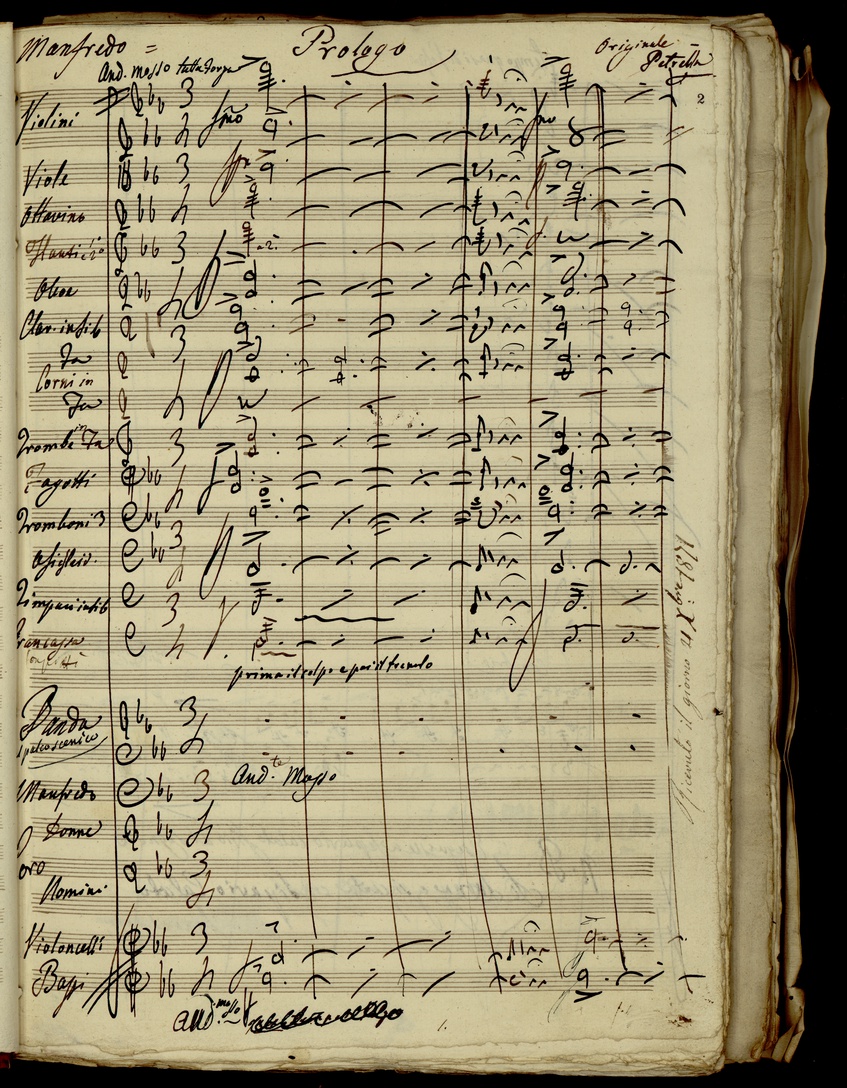 Manfredo = Prologo Originale
Petrella
And. mosso tutta forza
2
Violini
Viole
Ottavino
Flauti
Oboe
Clar. in sib
Fa
Corni in
Fa
Trombe in Fa
Fagotti
Tromboni 3
Timpani in sib
Grancassa
prima il colpo e poi il tremolo
Banda
palco scenico
And.te Mosso
Manfredo
Donne
Coro
Uomini
Violoncelli
Bassi
And. mosso
Ricevuto il giorno 21 Xbre 1871